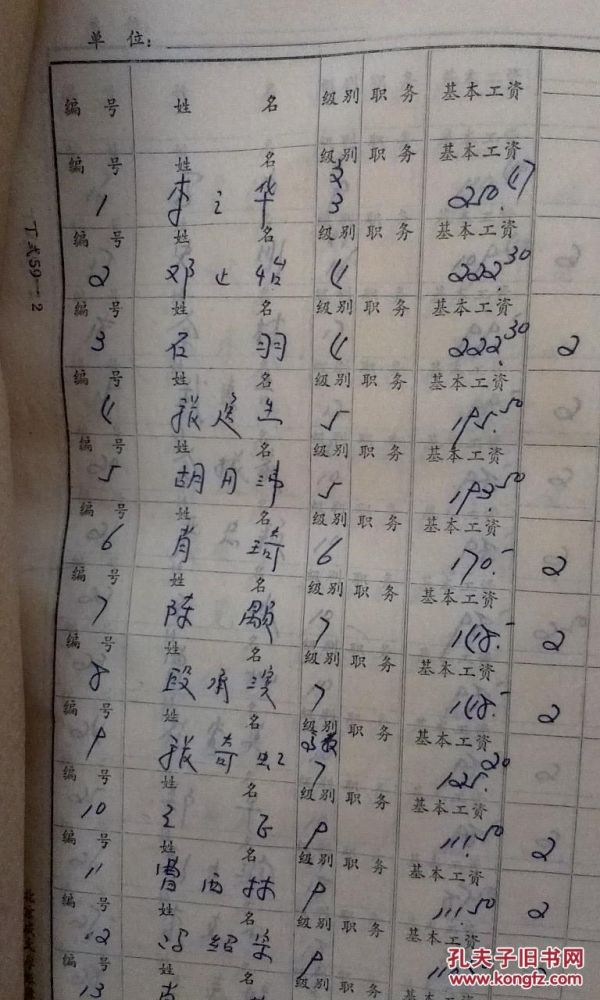 单 位:
编 号 姓 名 级别 职 务 基本工资
编 号 姓 名 级别 职 务 基本工资
1 李之华 3 250.47
编 号 姓 名 级别 职 务 基本工资
2 邓止怡 4 222.30
编 号 姓 名 级别 职 务 基本工资
3 石羽 4 222.30 2
编 号 姓 名 级别 职 务 基本工资
4 张逸生 5 195.50
编 号 姓 名 级别 职 务 基本工资
5 胡丹沸 5 193.50
编 号 姓 名 级别 职 务 基本工资
6 肖琦 6 170.- 2
编 号 姓 名 级别 职 务 基本工资
7 陈颙 7 148.- 2
编 号 姓 名 级别 职 务 基本工资
8 段承滨 7 148.- 2
编 号 姓 名 级别 职 务 基本工资
9 张奇虹 7 125.20
编 号 姓 名 级别 职 务 基本工资
10 王 9 111.50 2
编 号 姓 名 级别 职 务 基本工资
11 曹西林 9 111.50 2
编 号 姓 名 级别 职 务 基本工资
12 冯绍宗 9 2
编 号 姓 名 级别 职 务 基本工资
13 肖
丁式59-2
孔夫子旧书网
www.kongfz.com